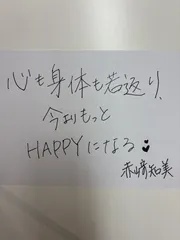 心も身体も若返り、
今よりもっと
HAPPYになる♥
赤﨑知美